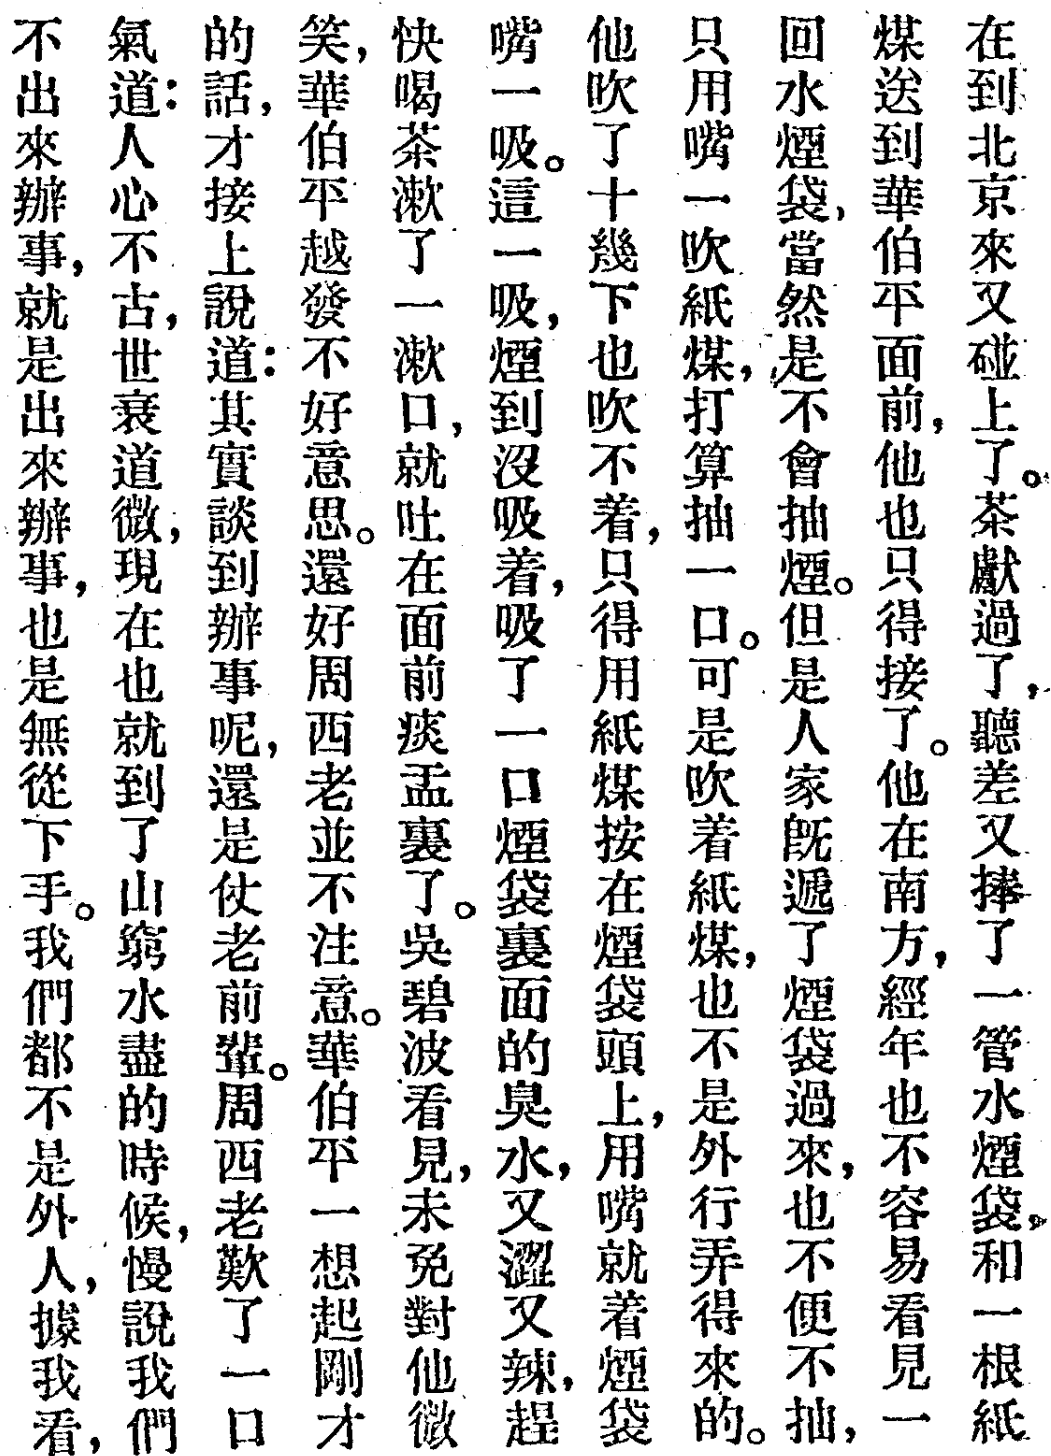 在到北京來又碰上了。茶獻過了，聽差又捧了一管水煙袋，和一根紙
煤送到華伯平面前，他也只得接了。他在南方，經年也不容易看見一
回水煙袋，當然是不會抽煙。但是人家既遞了煙袋過來，也不便不抽，
只用嘴一吹紙煤，打算抽一口。可是吹着紙煤，也不是外行弄得來的。
他吹了十幾下也吹不着，只得用紙煤按在煙袋頭上，用嘴就着煙袋
嘴一吸。這一吸，煙到沒吸着，吸了一口煙袋裏面的臭水，又澀又辣，趕
快喝茶漱了一漱口，就吐在面前痰盂裏了。吳碧波看見，未免對他微
笑，華伯平越發不好意思。還好周西老並不注意。華伯平一想起剛才
的話，才接上說道：其實談到辦事呢，還是仗老前輩。周西老歎了一口
氣道：人心不古，世衰道微，現在也就到了山窮水盡的時候，慢說我們
不出來辦事，就是出來辦事，也是無從下手。我們都不是外人，據我看，